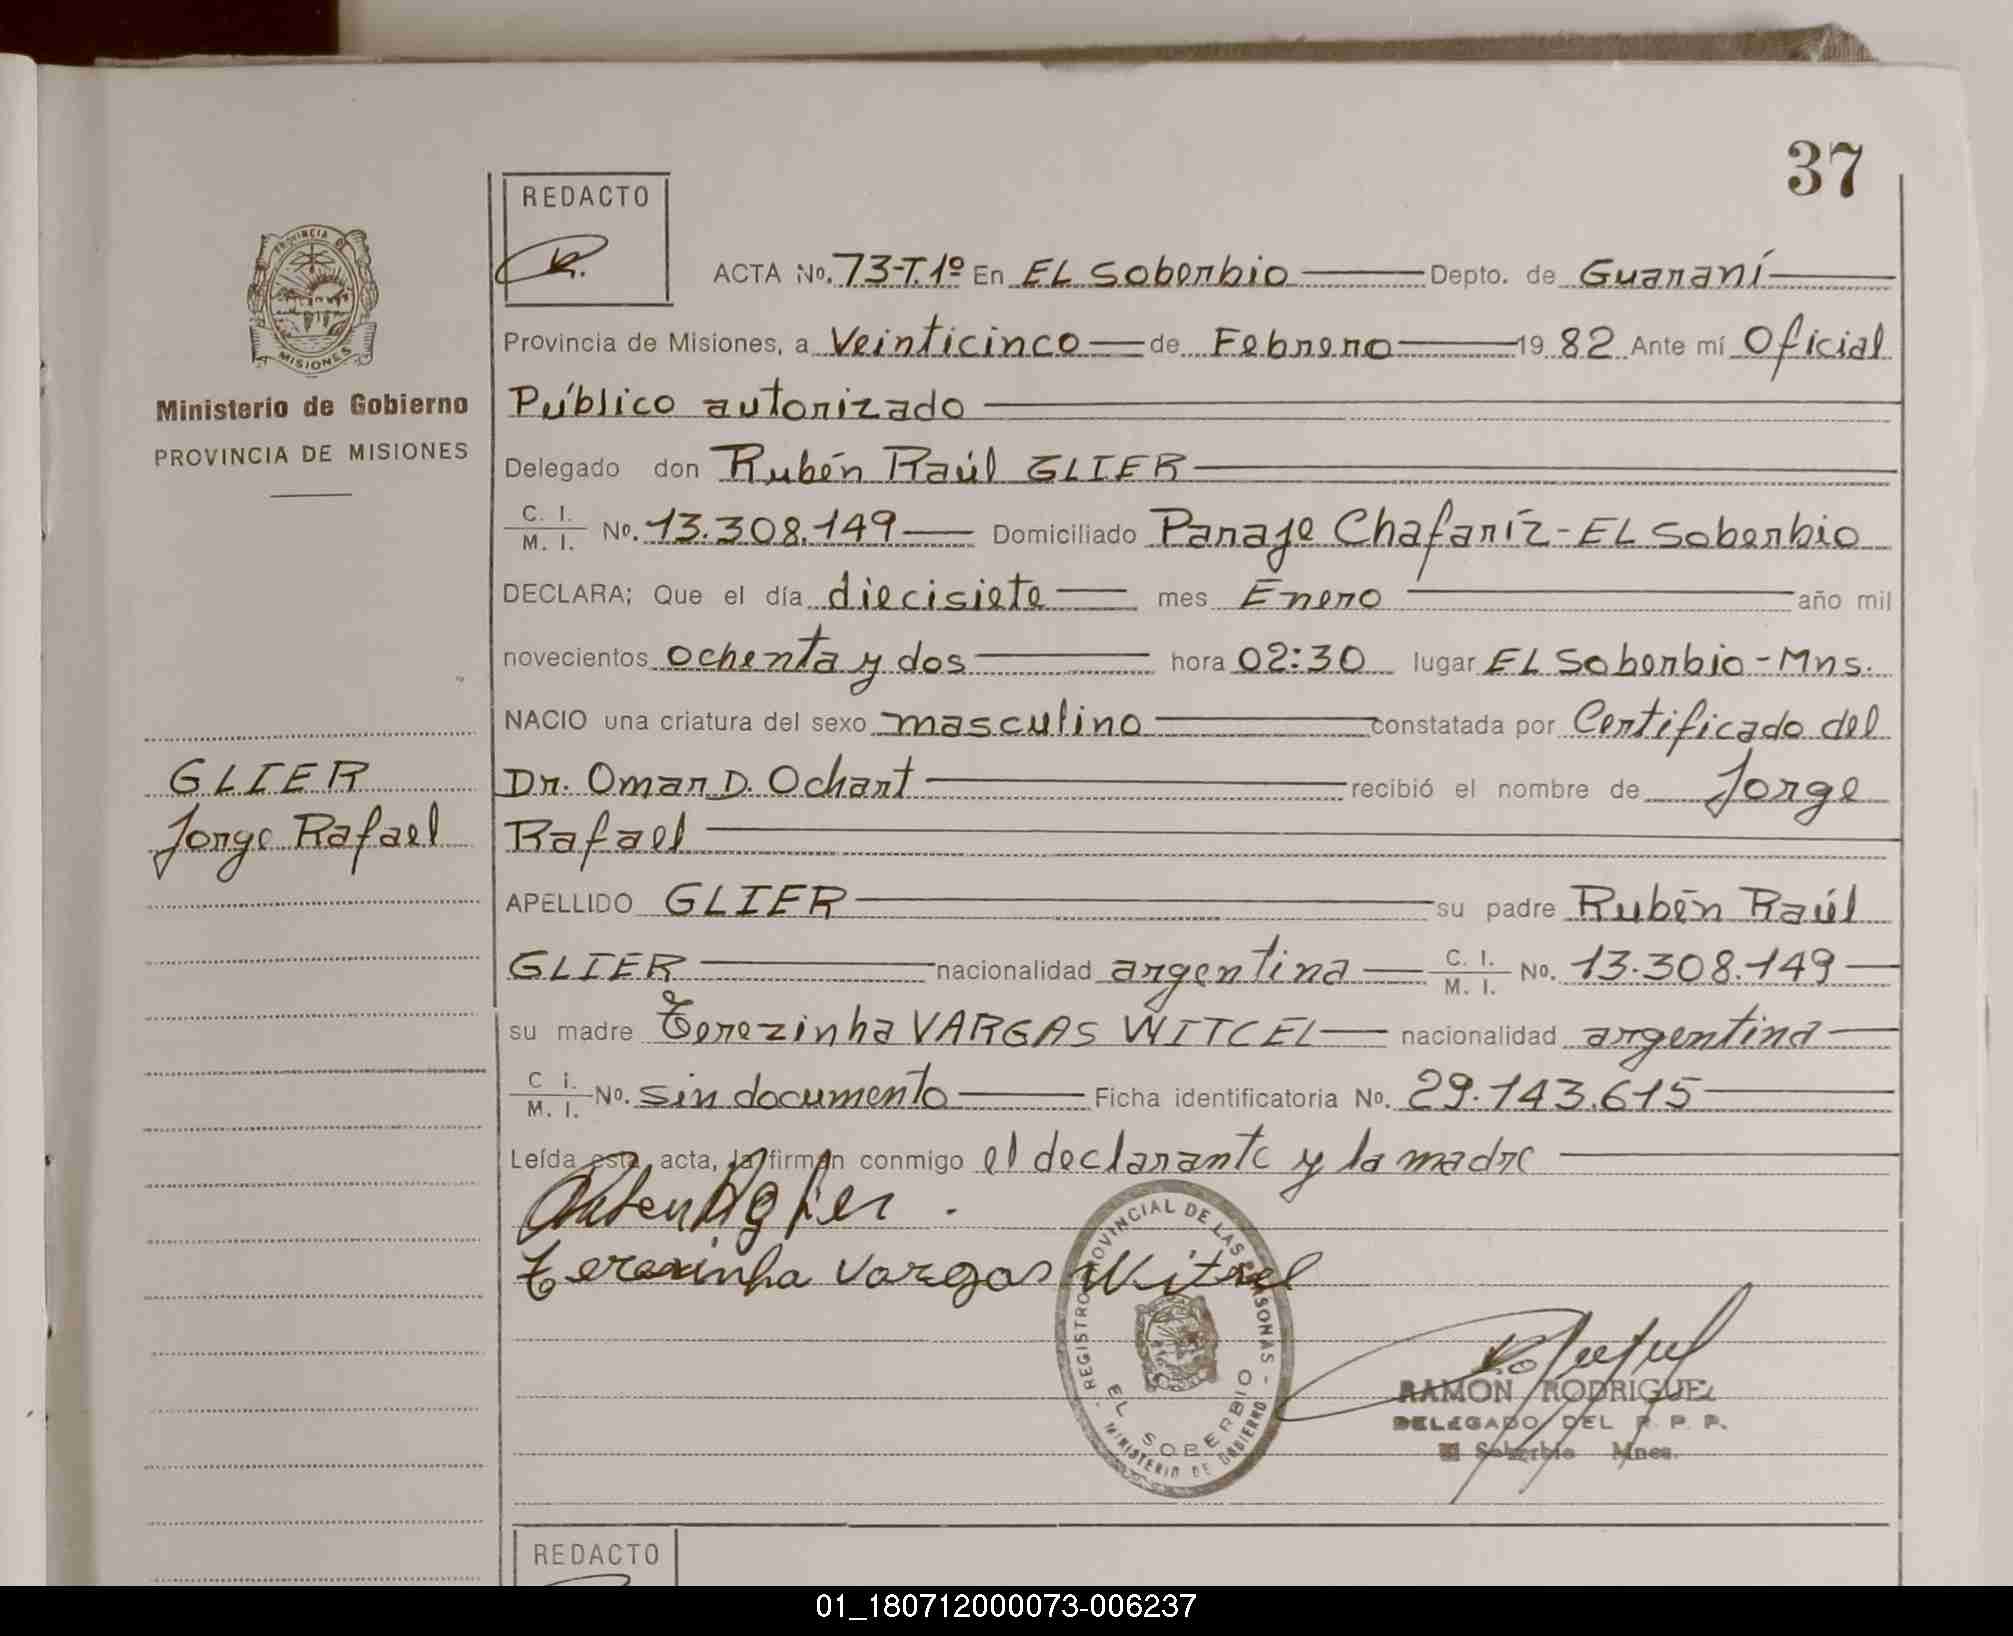 37
REDACTO
R.
PROVINCIA DE
MISIONES
Ministerio de Gobierno
PROVINCIA DE MISIONES
GLIER
Jorge Rafael
ACTA No. 73-T.1º En EL Soberbio Depto. de Guaraní
Provincia de Misiones, a Veinticinco de Febrero 19 82 Ante mí Oficial
Público autorizado
Delegado don Rubén Raúl GLIER
C. I. / M. I. No. 13.308.149 Domiciliado Paraje Chafaríz - EL Soberbio
DECLARA; Que el día diecisiete mes Enero año mil
novecientos ochenta y dos hora 02:30 lugar EL Soberbio - Mns.
NACIO una criatura del sexo masculino constatada por Certificado del
Dr. Omar D. Ochart recibió el nombre de Jorge
Rafael
APELLIDO GLIER su padre Rubén Raúl
GLIER nacionalidad argentina C. I. / M. I. No. 13.308.149
su madre Terezinha VARGAS WITCEL nacionalidad argentina
C i. / M. I. No. sin documento Ficha identificatoria No. 29.143.615
Leída esta acta, la firman conmigo el declarante y la madre
Ruben R glier
terezinha vargas Witcel
REGISTRO PROVINCIAL DE LAS PERSONAS
EL SOBERBIO
MINISTERIO DE GOBIERNO
RAMON RODRIGUEZ
DELEGADO DEL R. P. P.
El Soberbio Mnes.
REDACTO
01_180712000073-006237